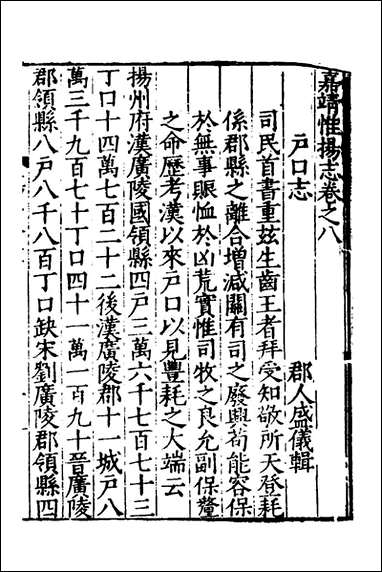 嘉靖惟揚志卷之八
郡人盛儀輯
戶口志
司民首書重兹生齒王者拜受知敬所天登耗
係郡縣之離合增減關有司之廢興苟能容保
於無事賑恤於凶荒實惟司牧之良允副保釐
之命歷考漢以來戶口以見豐耗之大端云
揚州府漢廣陵國領縣四戶三萬六千七百七十三
丁口十四萬七百二十二後漢廣陵郡十一城戶八
萬三千九百七十丁口四十一萬一百九十晉廣陵
郡領縣八戶八千八百丁口缺宋劉廣陵郡領縣四